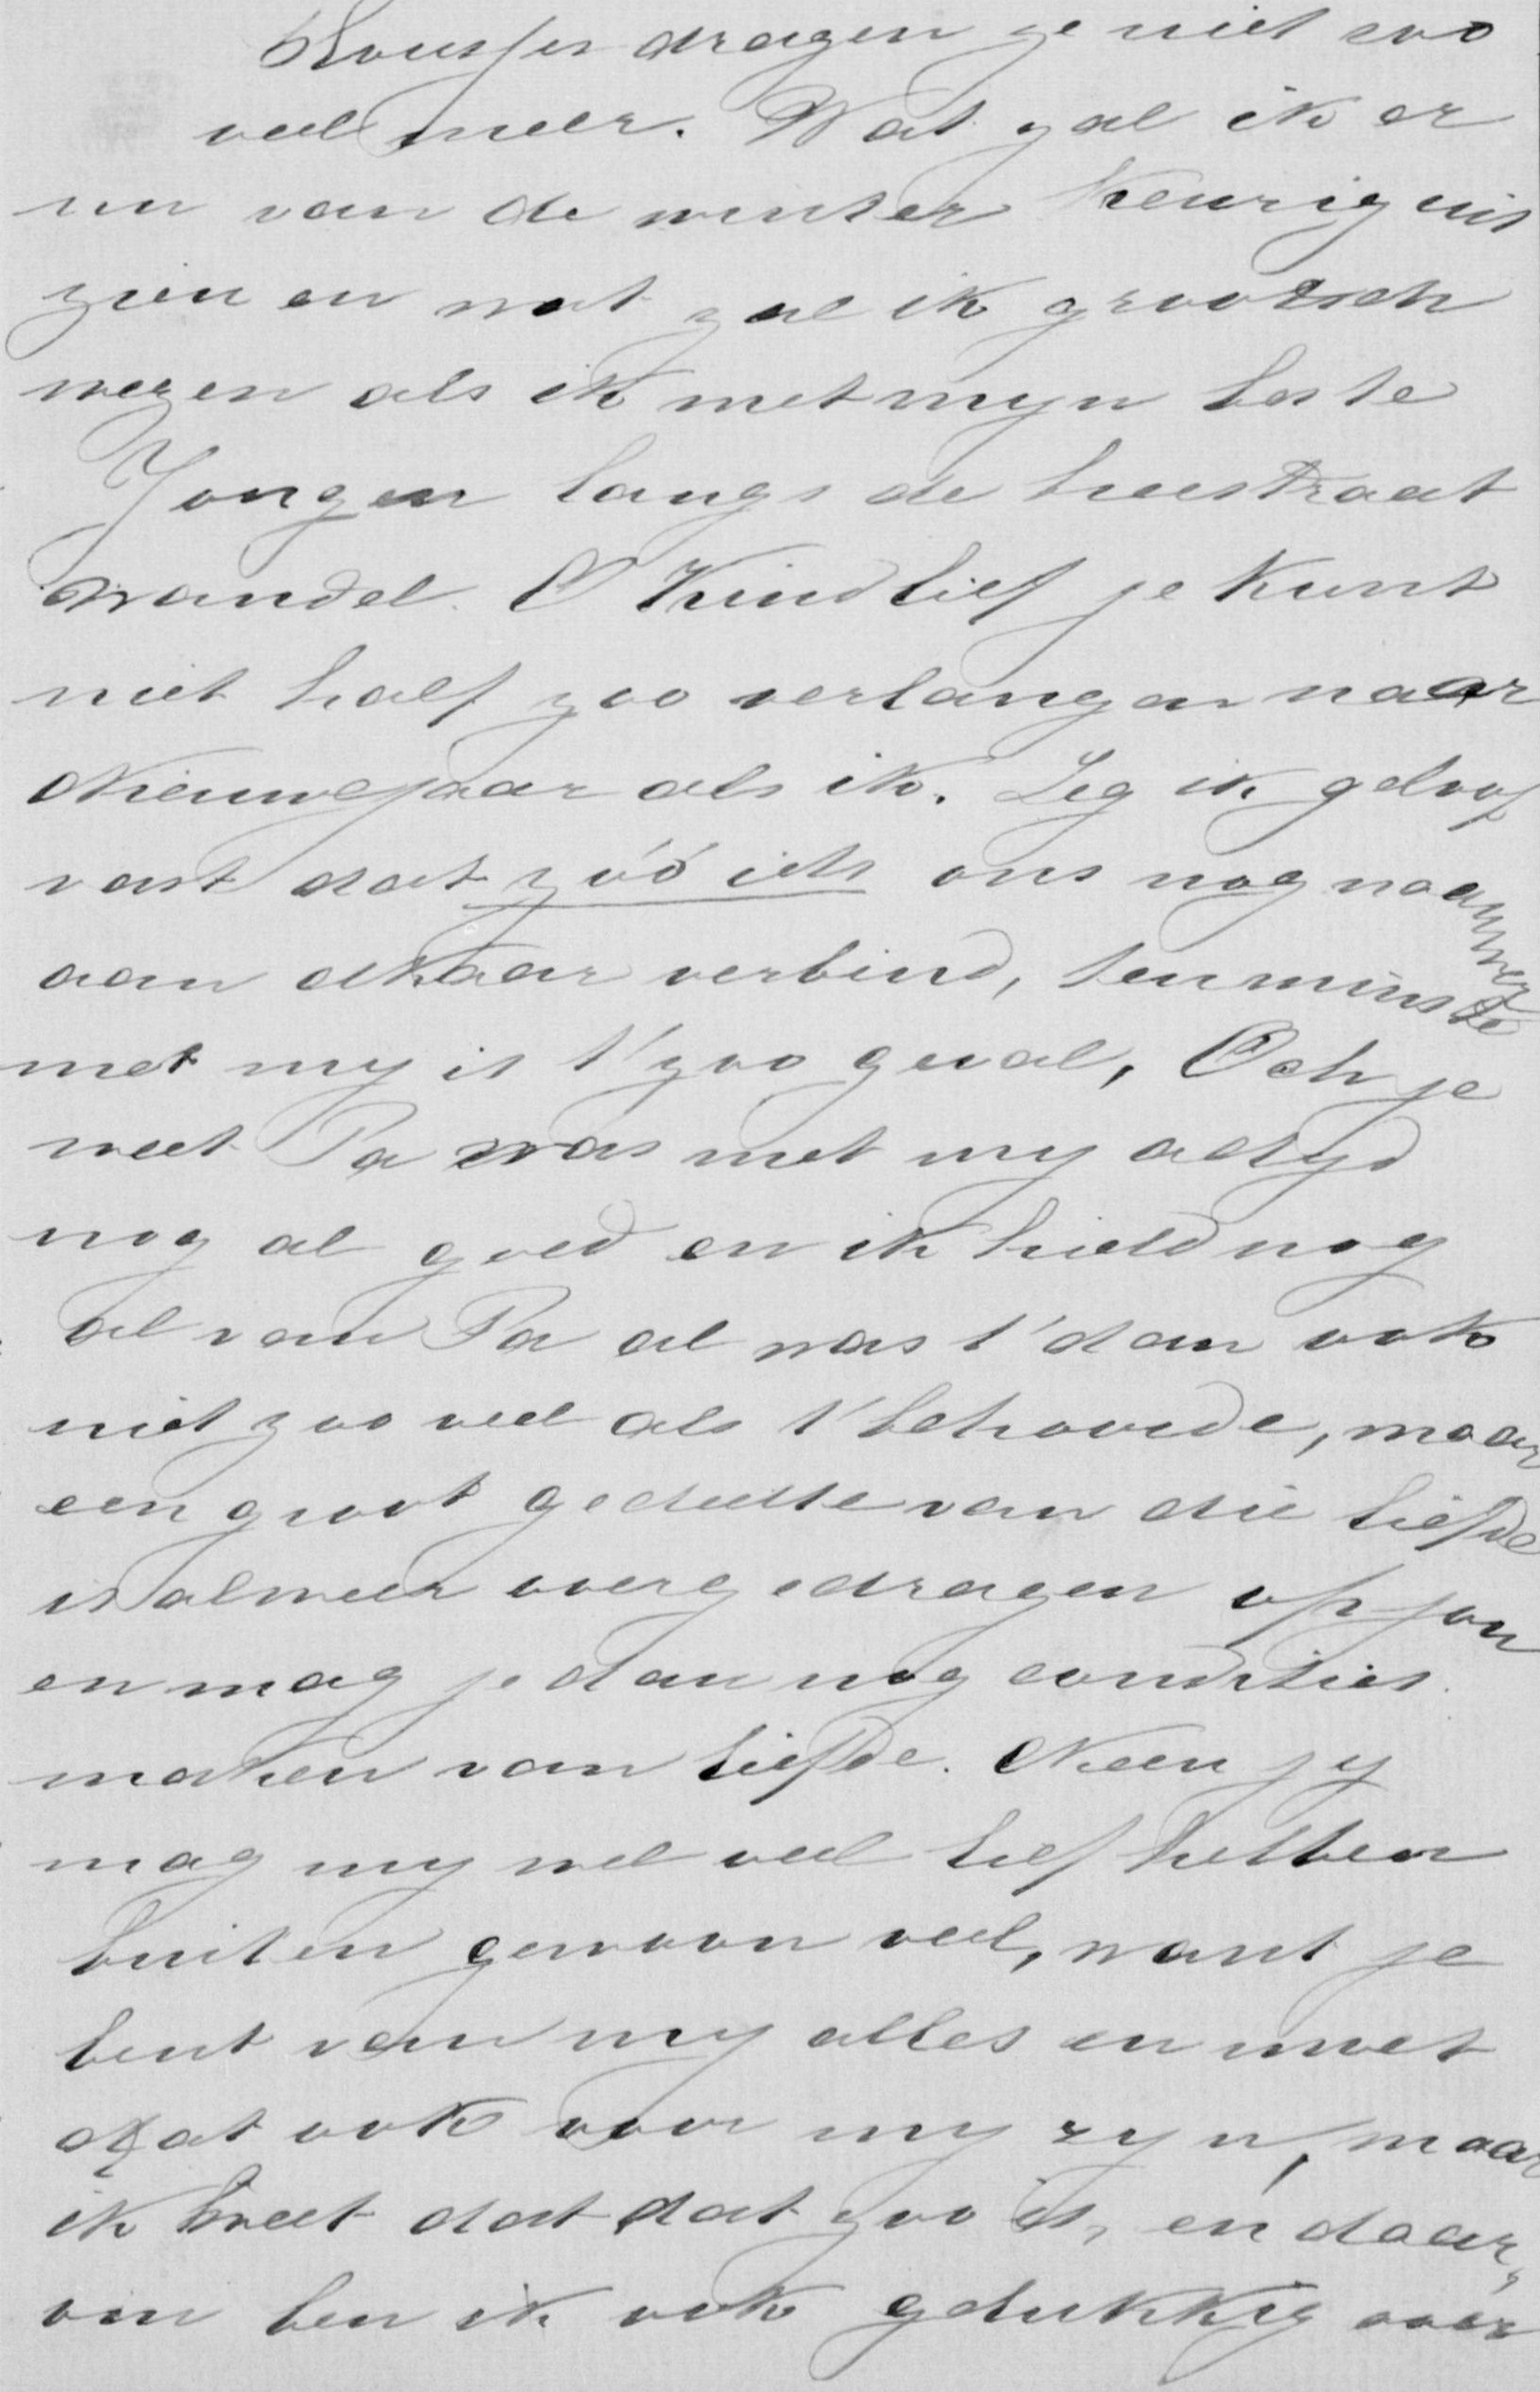 dragen je niet zoo
veel meer. Wat zal ik er
nu van de winter keurig uit
zien en wat zal ik grootsch
wezen als ik met myn beste
Jongen langs de heestraat
wandel. O Kindlief je kunt
niet half zoo verlangen naar
Nieuwejaar als ik. Zeg ik geloof
vast dat zóó iets ons nog naauwer
aan elkaar verbind, tenminste
met my is t' zoo geval, Och je
weet Pa was met my altyd
nog al goed en ik hield nog
al van Pa al was t' dan ook
niet zoo veel als t' behoorde, maar
een groot gedeelte van die liefde
is alweer overgedragen op jou
en mag je dan nog condities
maken van liefde. Neen jy
mag my wel veel lief hebben
buiten gewoon veel, want je
bent van my alles en moet
dat ook voor my zyn, maar
ik weet dat dat zoo is, en daar,,
om ben ik ook gelukkig voor